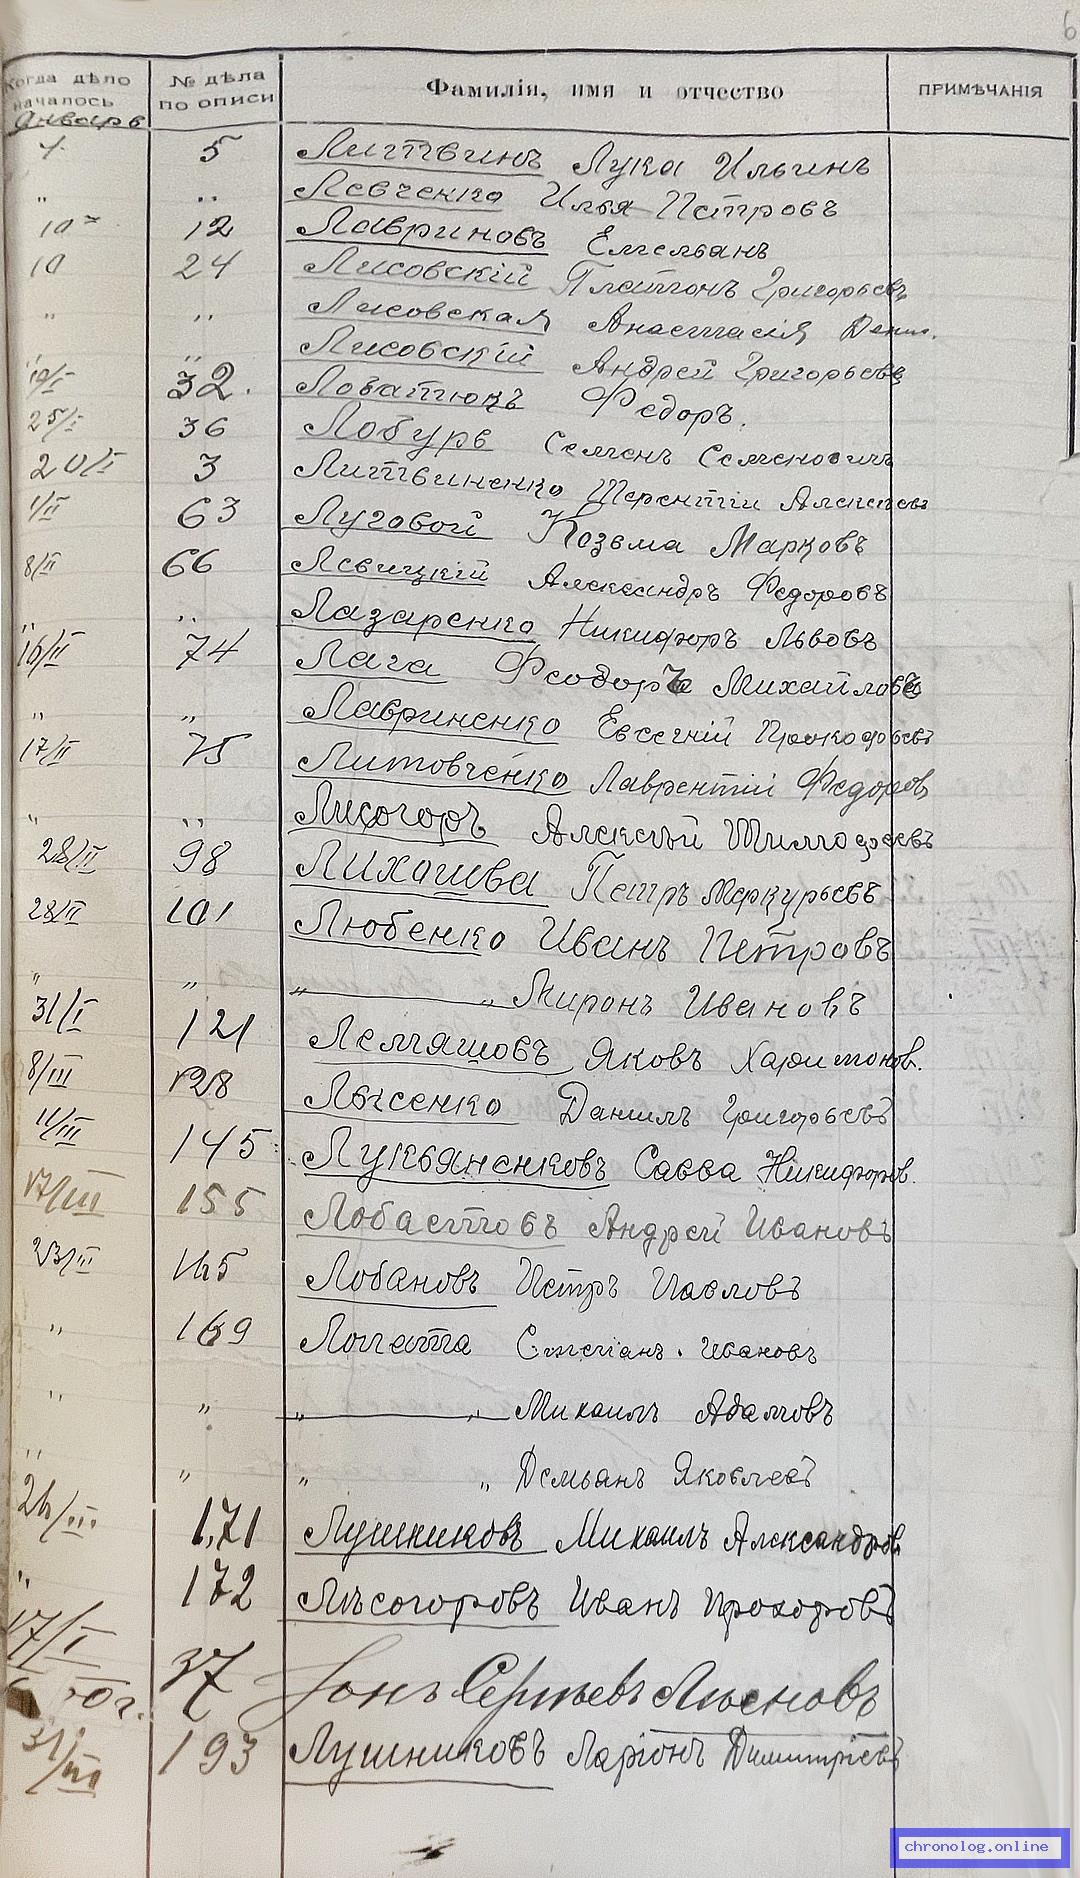 6
Когда дѣло началось № дѣла по описи Фамилія, имя и отчество ПРИМѢЧАНІЯ
Январь
4 5 Литвинъ Лука Ильинъ
" " Левченко Илья Петровъ
10 12 Лавриновъ Емельянъ
10 24 Лисовскій Платонъ Григорьевъ
" " Лисовская Анастасія
" " Лисовскій Андрей Григорьевъ
19/I 32. Ловатюкъ Федоръ.
25/I 36 Лобурь Семенъ Семеновичъ
20/I 3 Литвиненко Терентій Алексѣевъ
1/II 63 Луговой Козьма Марковъ
8/II 66 Левицкій Александръ Федоровъ
" " Лазаренко Никифоръ Львовъ
16/II 74 Лага Феодоръ Михайловъ
" " Лавриненко Евгеній Прокофьевъ
17/II 75 Литовченко Лаврентій Федоров
" " Лисогоръ Алексѣй Тимофеевъ
28/II 98 Лихачева Петръ Меркурьевъ
28/II 101 Любенко Иванъ Петровъ
" " " " Миронъ Ивановъ
31/I 121 Лемяшовъ Яковъ Харитонов.
8/III 128 Лысенко Даниилъ Григорьевъ
11/III 145 Лукьяненковъ Савва Никифоров.
17/III 155 Лобастовъ Андрей Ивановъ
23/III 165 Лобановъ Петръ Павловъ
" 169 Лопата Степанъ. Ивановъ
" " " " Михаилъ Адамовъ
" " " " Демьянъ Яковлевъ
26/III 171 Лушниковъ Михаилъ Александров
" 172 Лѣсогоровъ Иванъ Прохоровъ
17/I 37 Іонъ Сергѣевъ
31/III 193 Лушниковъ Ларіонъ Димитріевъ
chronolog.online